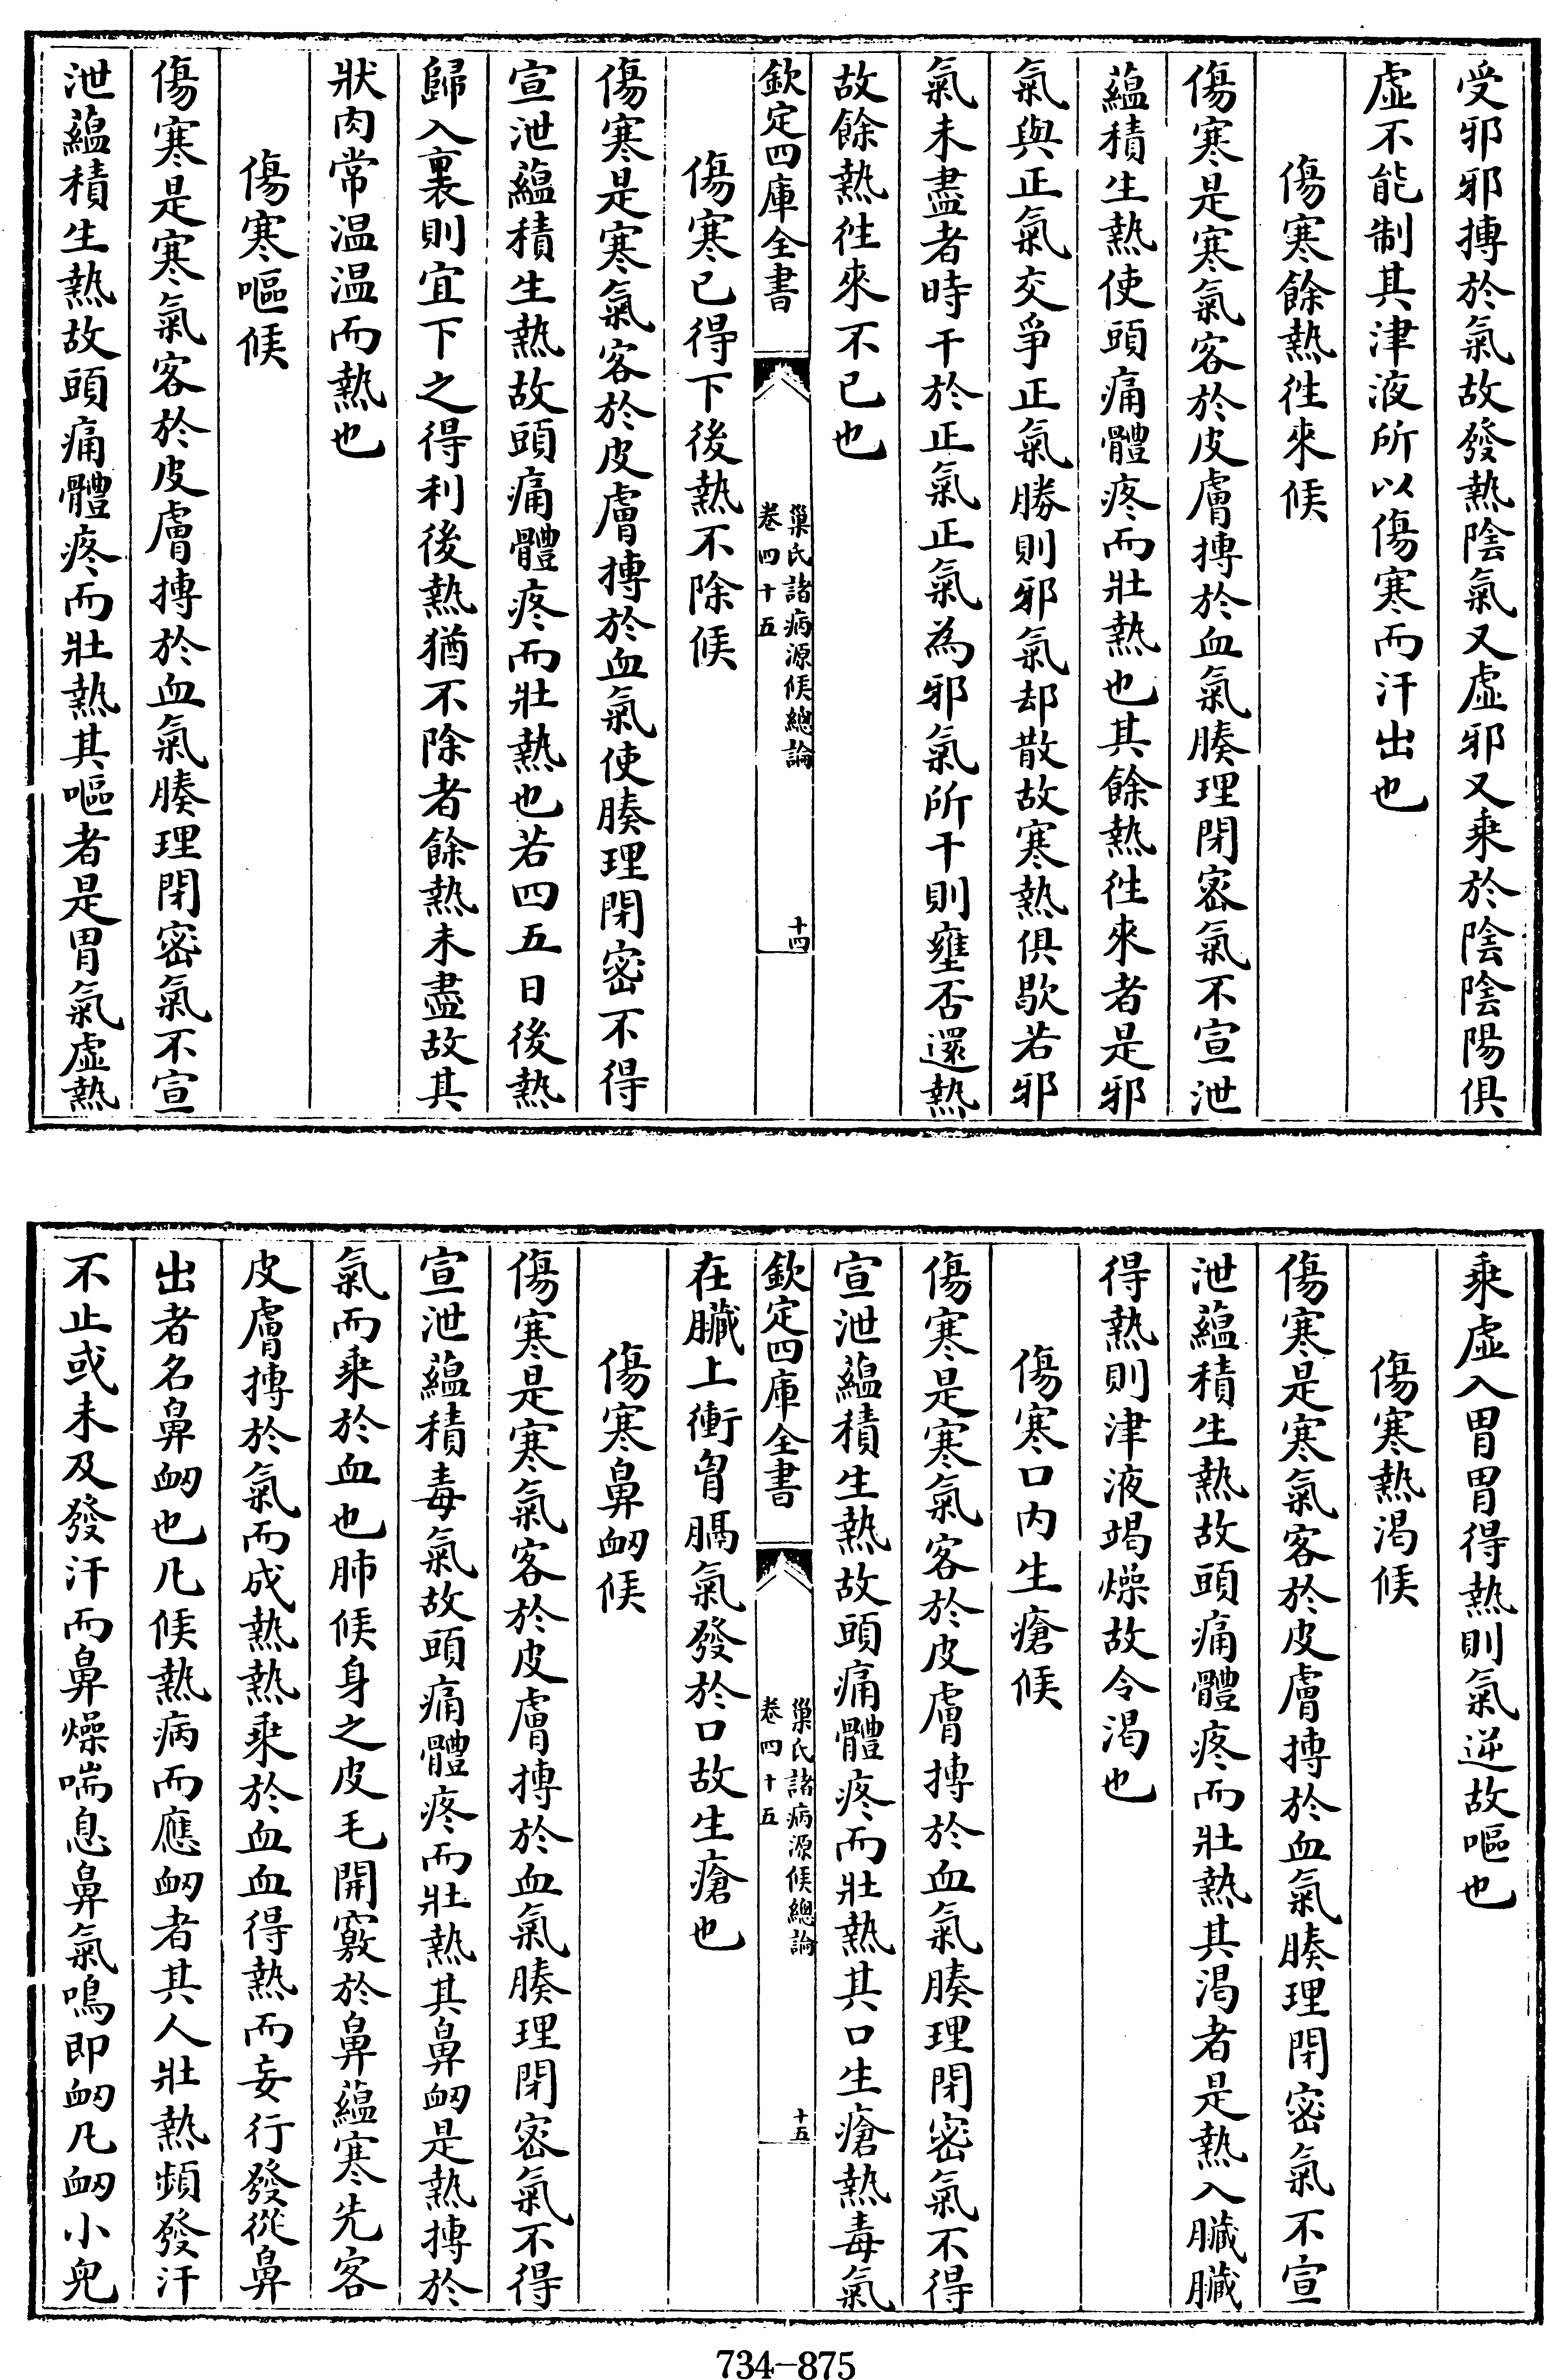 受邪邪搏於氣故發熱陰氣又虛邪又乗於陰陰陽俱
虛不能制其津液所以傷寒而汗出也
傷寒餘熱徃來候
傷寒是寒氣客於皮膚搏於血氣腠理閉密氣不宣泄
藴積生熱使頭痛體疼而壯熱也其餘熱徃來者是邪
氣與正氣交爭正氣勝則邪氣却散故寒熱俱歇若邪
氣未盡者時干於正氣正氣為邪氣所干則壅否還熱
故餘熱徃來不已也
欽定四庫全書
巢氏諸病源候總論
卷四十五
十四
傷寒已得下後熱不除候
傷寒是寒氣客於皮膚搏於血氣使腠理閉密不得
宣泄藴積生熱故頭痛體疼而壯熱也若四五日後熱
歸入裏則宜下之得利後熱猶不除者餘熱未盡故其
狀肉常温温而熱也
傷寒嘔候
傷寒是寒氣客於皮膚搏於血氣腠理閉密氣不宣
泄藴積生熱故頭痛體疼而壯熱其嘔者是胃氣虛熱
乗虛入胃胃得熱則氣逆故嘔也
傷寒熱渇候
傷寒是寒氣客於皮膚搏於血氣腠理閉密氣不宣
泄藴積生熱故頭痛體疼而壯熱其渇者是熱入臟臟
得熱則津液竭燥故令渇也
傷寒口内生瘡候
傷寒是寒氣客於皮膚搏於血氣腠理閉密氣不得
宣泄藴積生熱故頭痛體疼而壯熱其口生瘡熱毒氣
欽定四庫全書
巢氏諸病源候總論
卷四十五
十五
在臟上衝胷膈氣發於口故生瘡也
傷寒鼻衂候
傷寒是寒氣客於皮膚搏於血氣腠理閉密氣不得
宣泄藴積毒氣故頭痛體疼而壯熱其鼻衂是熱搏於
氣而乗於血也肺候身之皮毛開竅於鼻藴寒先客
皮膚搏於氣而成熱熱乗於血血得熱而妄行發從鼻
出者名鼻衂也凡候熱病而應衂者其人壯熱頻發汗
不止或未及發汗而鼻燥喘息鼻氣鳴即衂凡衂小兒
734-875